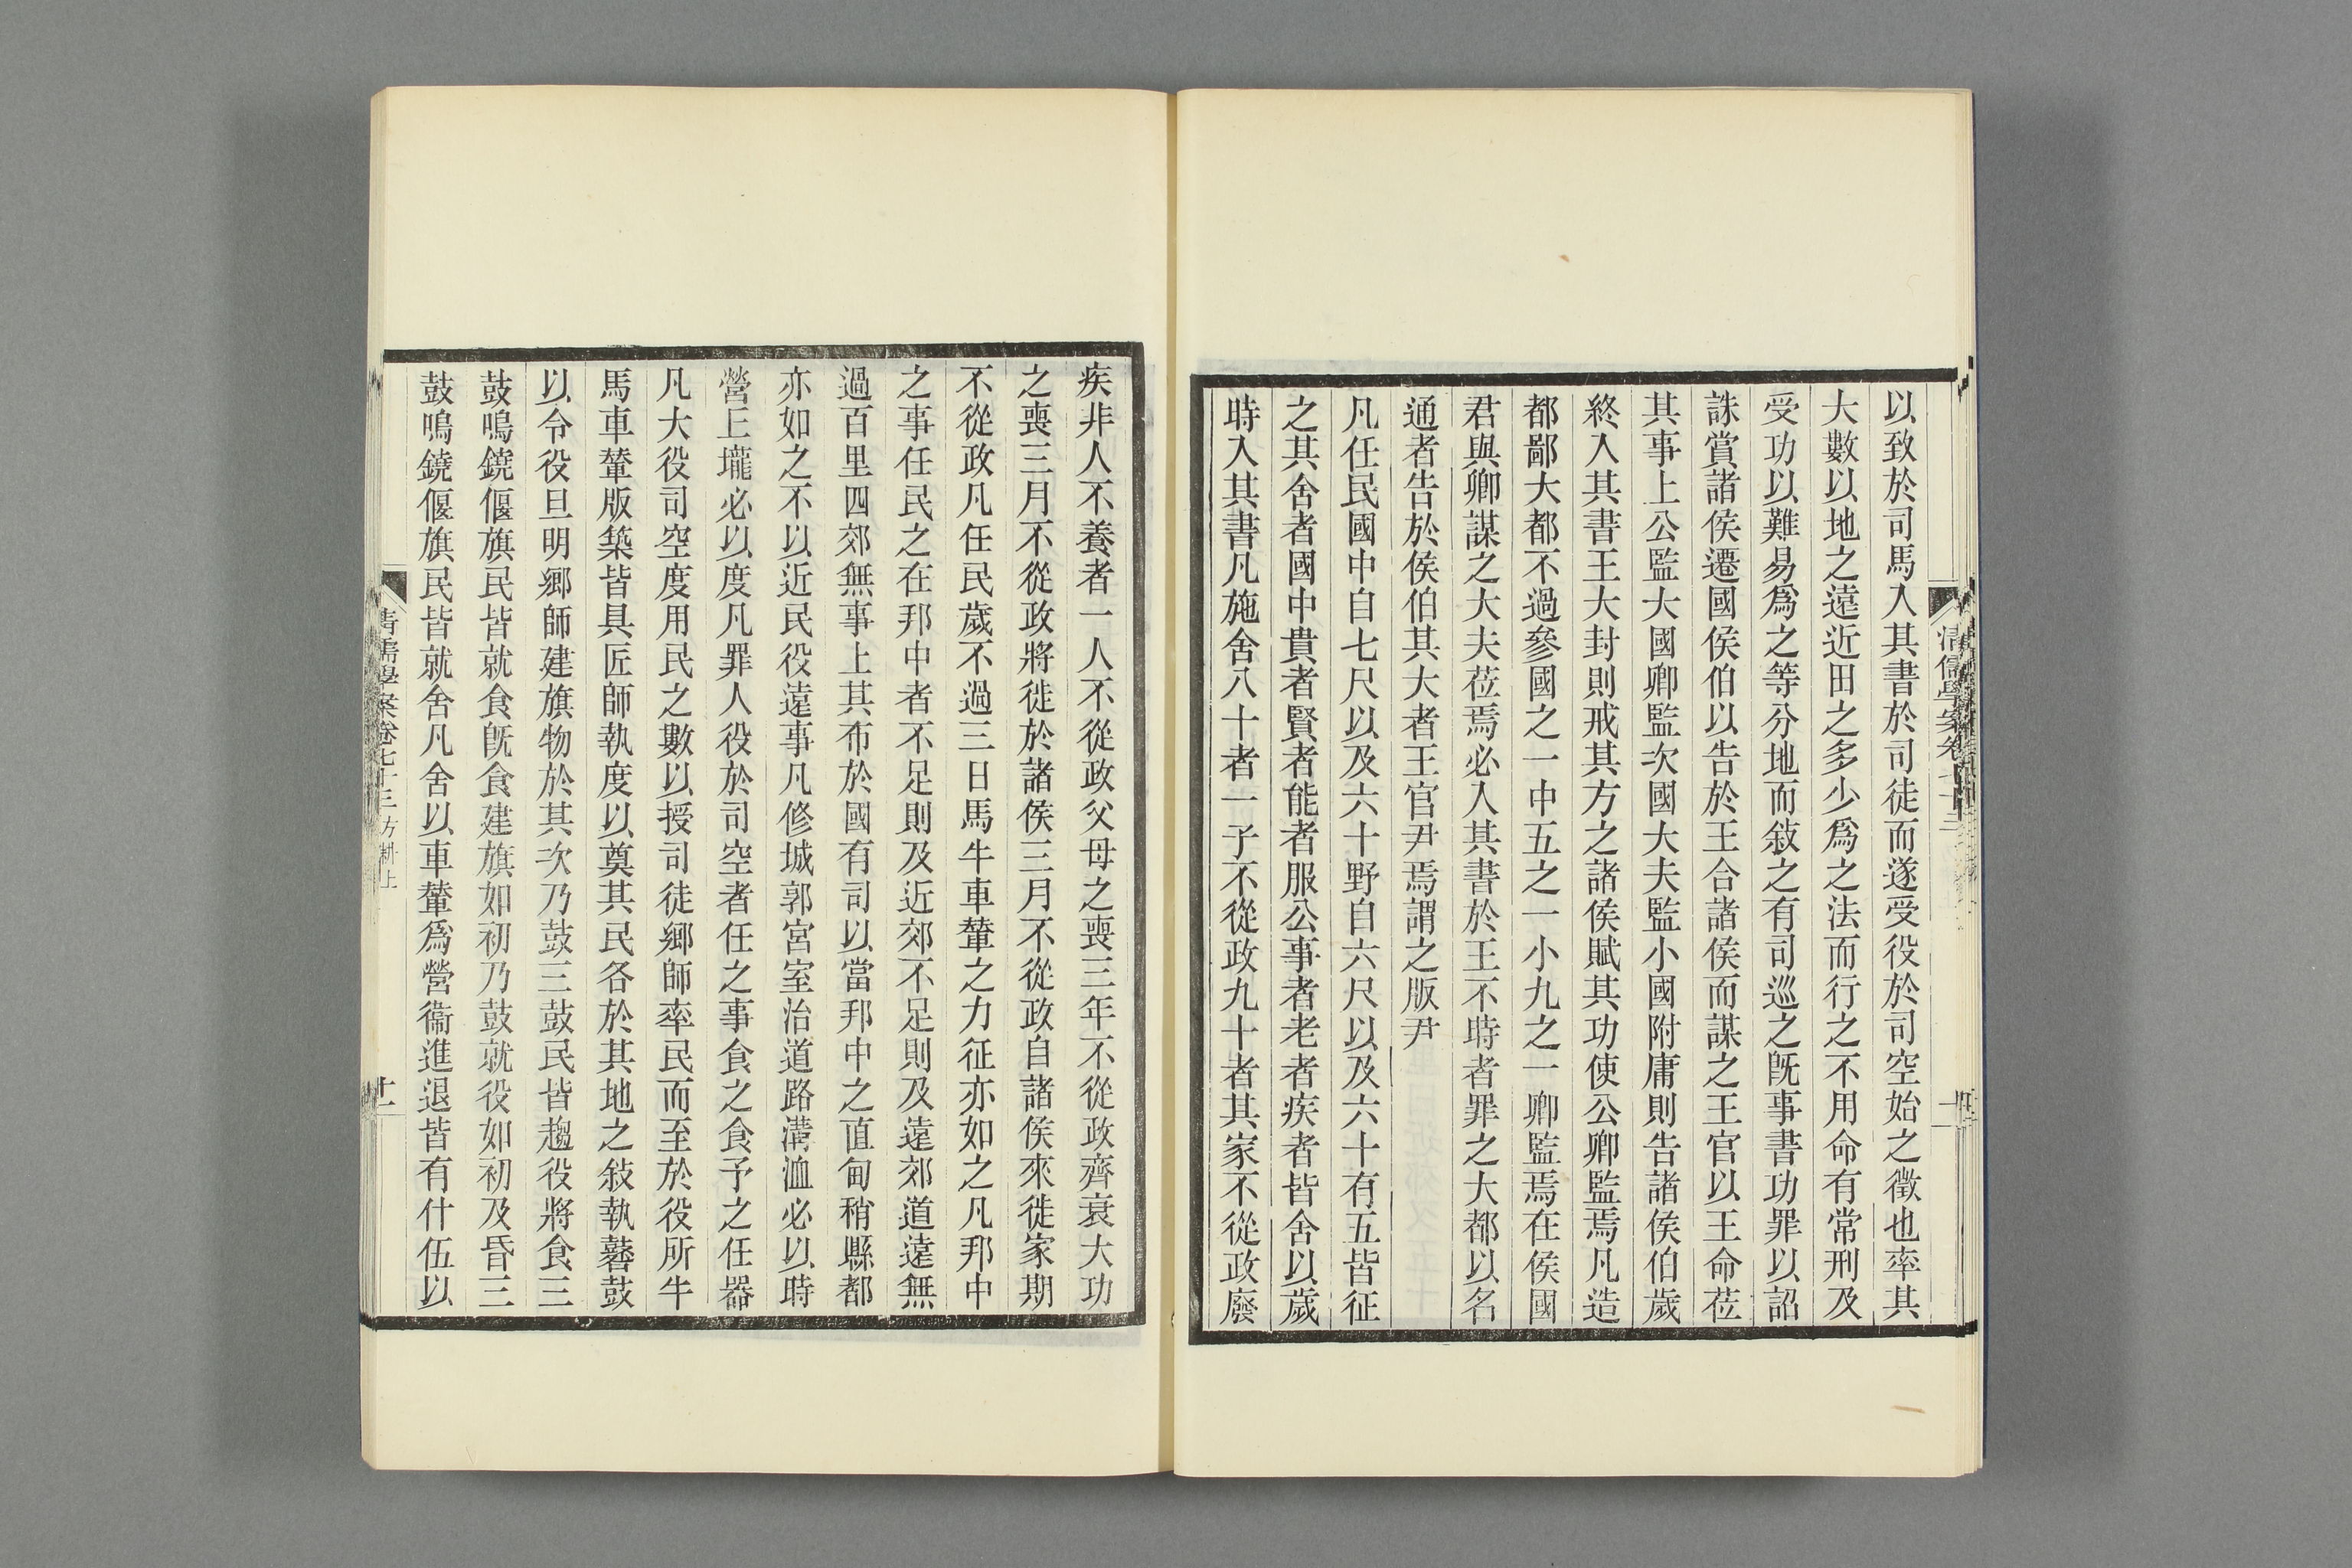 以致於司馬入其書於司徒而遂受役於司空始之徵也率其
大數以地之遠近田之多少爲之法而行之不用命有常刑及
受功以難易爲之等分地而敍之有司巡之旣事書功罪以詔
誅賞諸侯遷國侯伯以告於王合諸侯而謀之王官以王命莅
其事上公監大國卿監次國大夫監小國附庸則告諸侯伯歲
終入其書王大封則戒其方之諸侯賦其功使公卿監焉凡造
都鄙大都不過參國之一中五之一小九之一卿監焉在侯國
君與卿謀之大夫莅焉必入其書於王不時者罪之大都以名
通者告於侯伯其大者王官尹焉謂之版尹
凡任民國中自七尺以及六十野自六尺以及六十有五皆征
之其舍者國中貴者賢者能者服公事者老者疾者皆舍以歲
時入其書凡施舍八十者一子不從政九十者其家不從政廢
疾非人不養者一人不從政父母之喪三年不從政齊衰大功
之喪三月不從政將徙於諸侯三月不從政自諸侯來徙家期
不從政凡任民歲不過三日馬牛車輦之力征亦如之凡邦中
之事任民之在邦中者不足則及近郊不足則及遠郊道遠無
過百里四郊無事上其布於國有司以當邦中之直甸稍縣都
亦如之不以近民役遠事凡修城郭宮室治道路溝洫必以時
營丘壠必以度凡罪人役於司空者任之事食之食予之任器
凡大役司空度用民之數以授司徒鄉師率民而至於役所牛
馬車輦版築皆具匠師執度以奠其民各於其地之敍執鼛鼓
以令役旦明鄉師建旗物於其次乃鼓三鼓民皆趨役將食三
鼓鳴鐃偃旗民皆就食旣食建旗如初乃鼓就役如初及昏三
鼓鳴鐃偃旗民皆就舍凡舍以車輦爲營衞進退皆有什伍以
清儒學案卷七十三 方耕上
十一